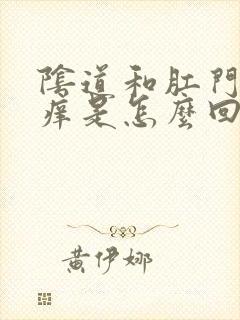 陰道和肛門
痒是怎麼回
黄伊娜